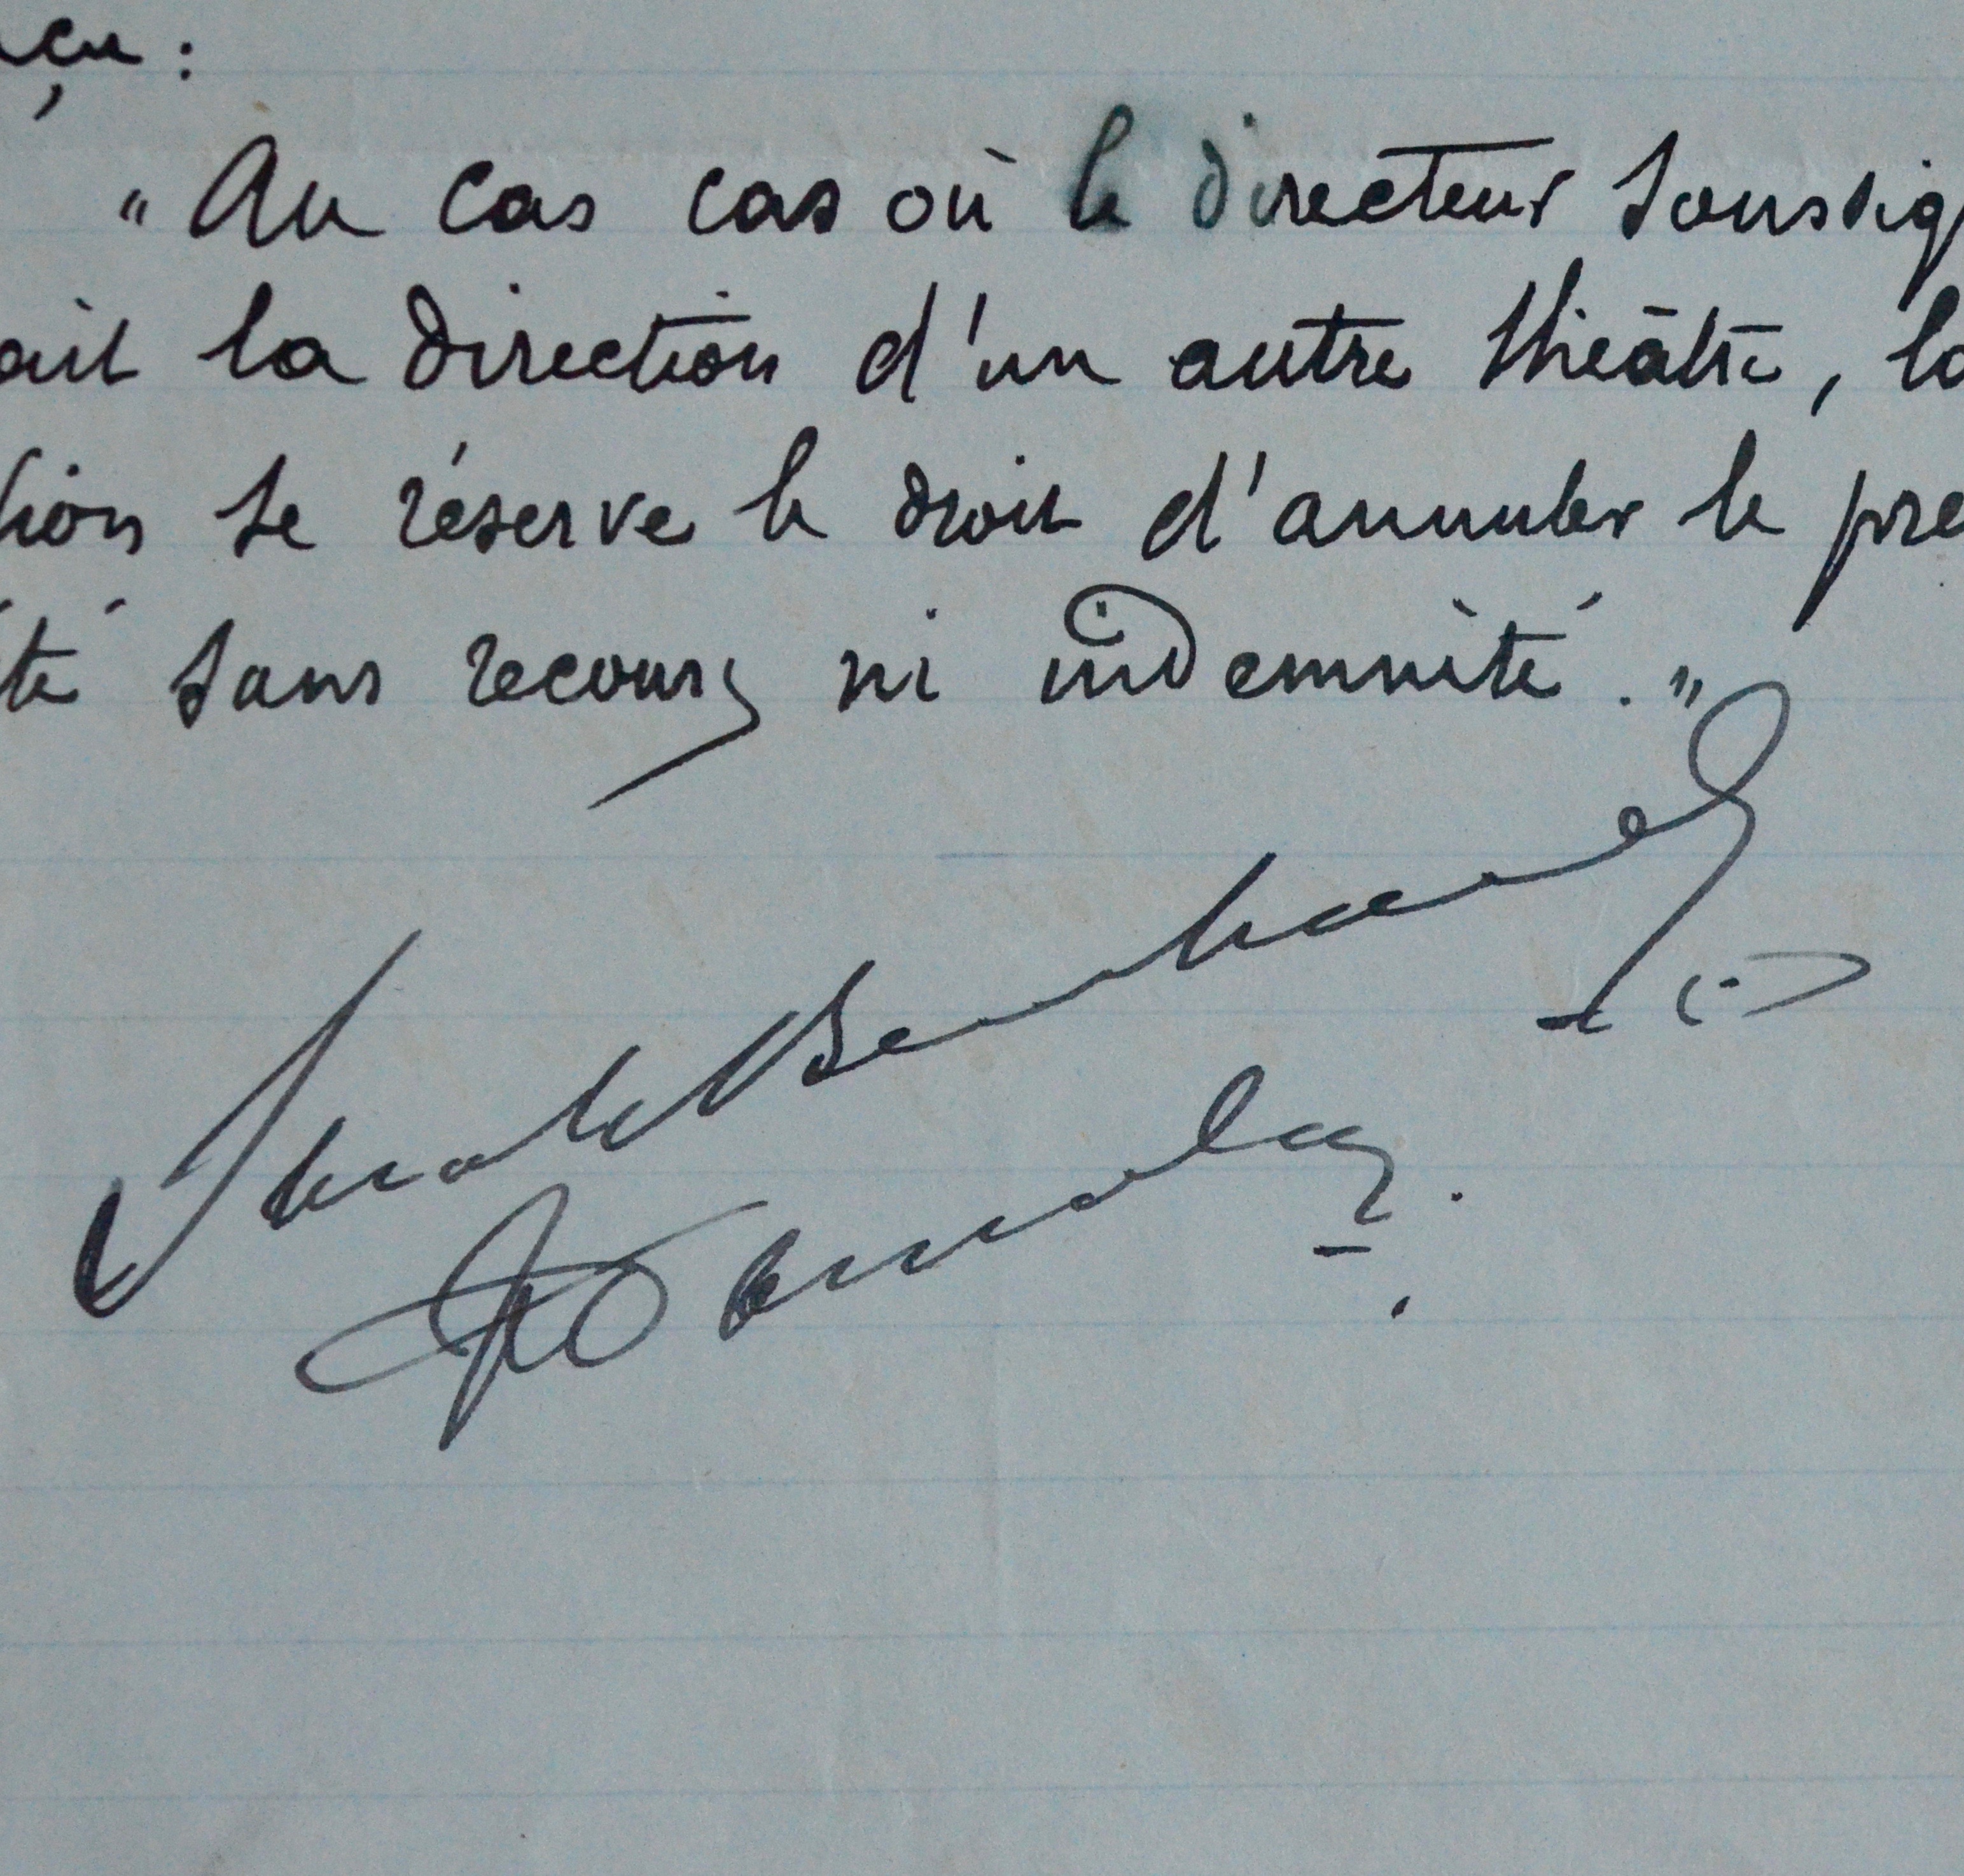 çu :
"Au cas cas où le directeur soussig
ait la direction d'un autre théâtre, la
tion se réserve le droit d'annuler le pré
té sans recours ni indemnité."
Sarah Bernhardt
Damala